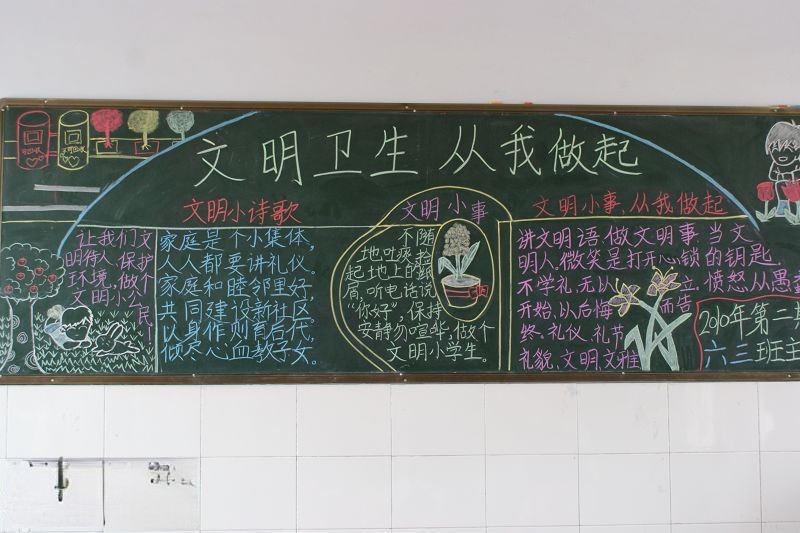 文明卫生 从我做起
文明小诗歌
文明小事
文明小事,从我做起
让我们文
明待人,保护
环境,做个
文明小公
民!
家庭是个小集体,
人人都要讲礼仪。
家庭和睦邻里好,
共同建设新社区
以身作则育后代,
倾尽心血教子女。
不随
地吐痰,拾
起地上的纸
屑,听电话说
“你好”,保持
安静勿喧华,做个
文明小学生。
讲文明语,做文明事,当文
明人。微笑是打开心锁的钥匙
不学礼,无以 立,愤怒从愚
开始,以后悔 而告
终。礼仪、礼节
礼貌、文明、文雅
2010年第二
六三班主